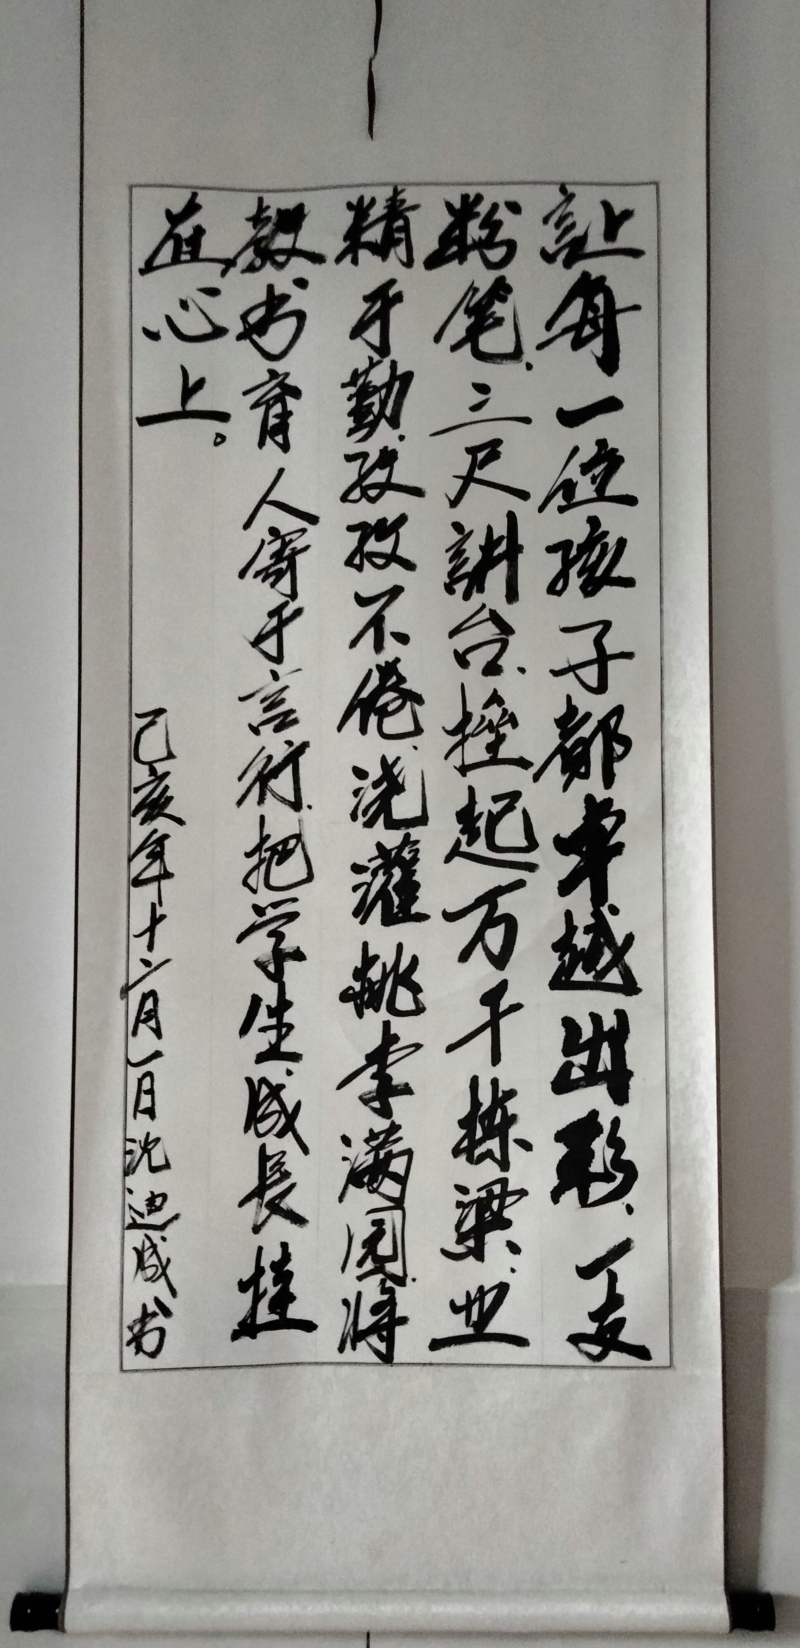 让每一位孩子都卓越出彩、一支
粉笔、三尺讲台、撑起万千栋梁、业
精于勤、孜孜不倦、浇灌桃李满园、将
教书育人寄于言行、把学生成长挂
在心上。
己亥年十二月一日沈迪成书